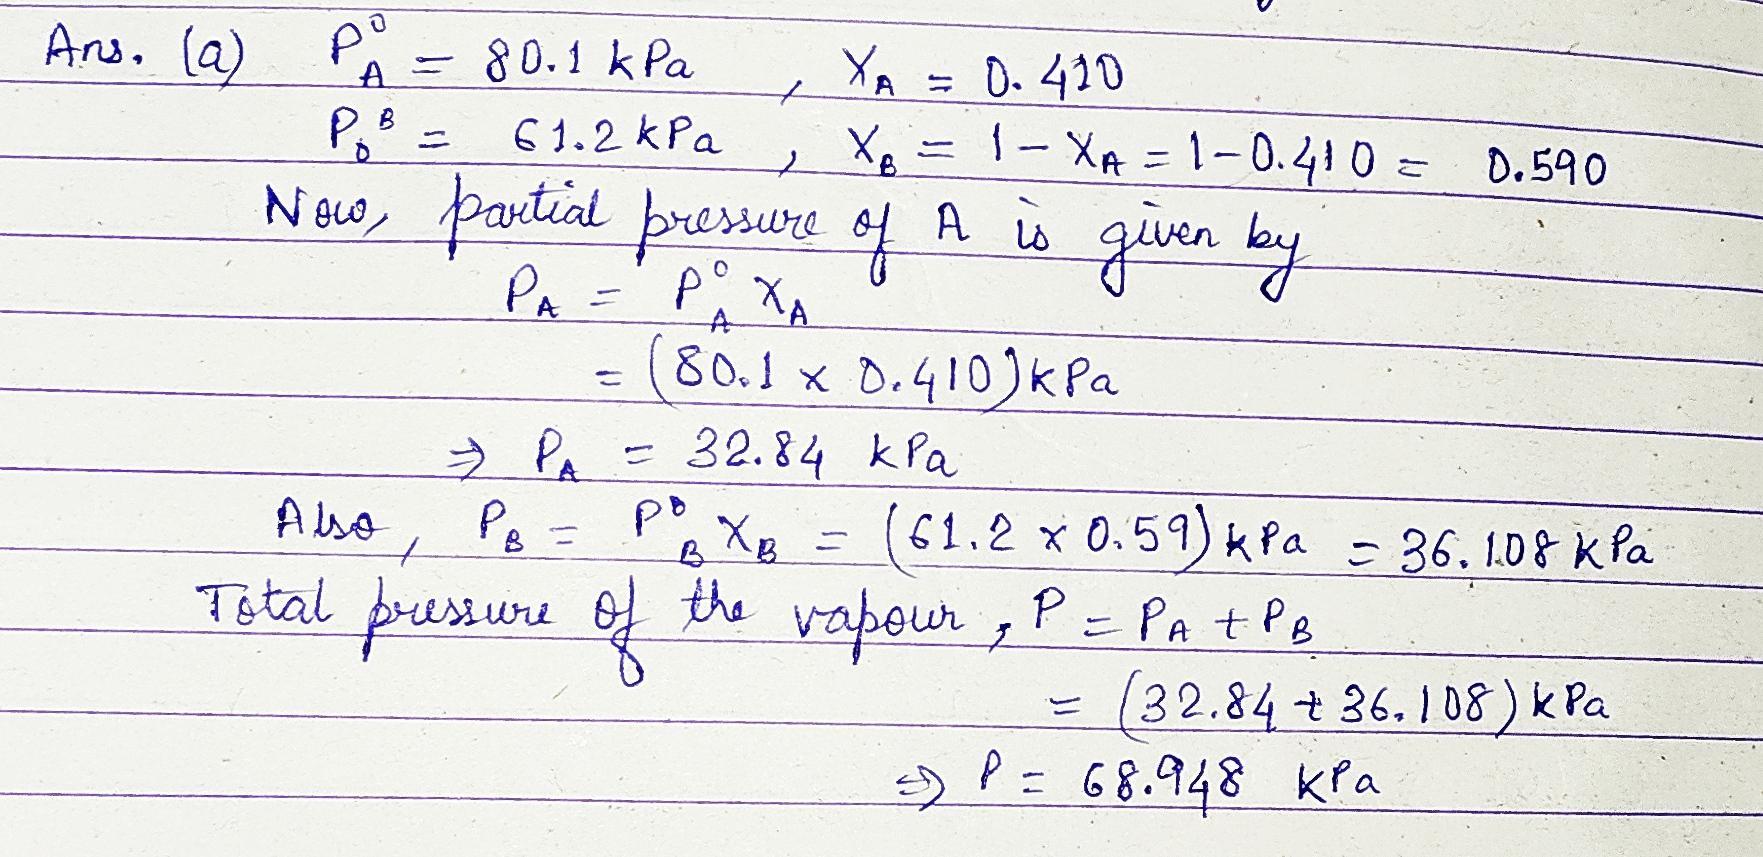 Ans. (a) P°A = 80.1 kPa , XA = 0.410
P₀ᴮ = 61.2 kPa , XB = 1 - XA = 1 - 0.410 = 0.590
Now, partial pressure of A is given by
PA = P°A XA
= (80.1 x 0.410) kPa
⇒ PA = 32.84 kPa
Also, PB = P°B XB = (61.2 x 0.59) kPa = 36.108 kPa
Total pressure of the vapour, P = PA + PB
= (32.84 + 36.108) kPa
⇒ P = 68.948 kPa